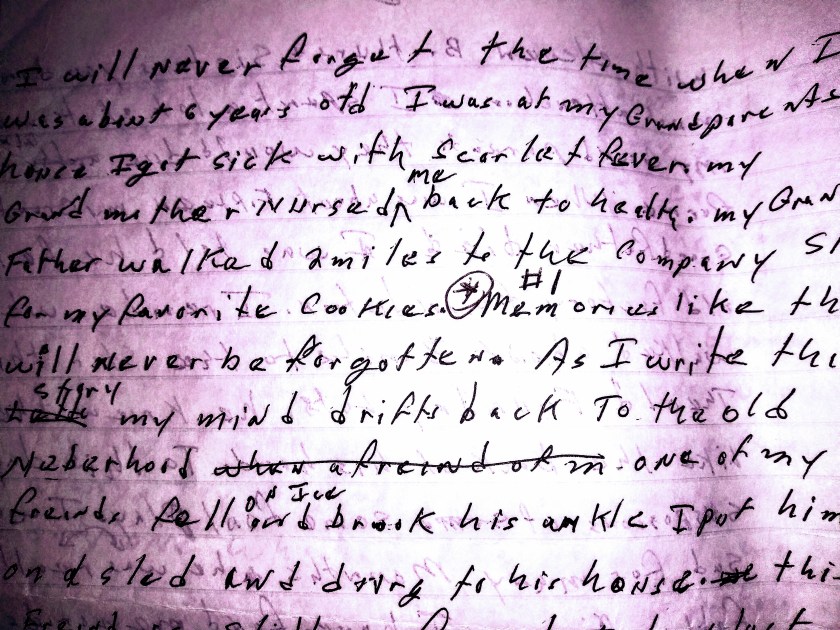 I will never forget the time when I
was about 6 years old I was at my Grandparents
house I got sick with Scarlet fever. my
Grand mother nursed me back to health. my Gran
Father walked 2 miles to the Company St
for my favorite Cookies. * #1 Memories like th
will never be forgotten. As I write thi
story my mind drifts back To the old
Naberhord when a freind of m one of my
freinds fell on Ice and brook his ankle I put him
on a sled and drug to his house. thi